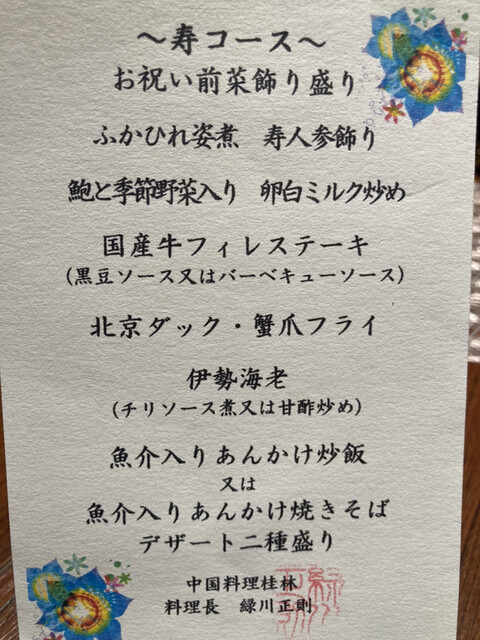 ～寿コース～
お祝い前菜飾り盛り
ふかひれ姿煮　寿人参飾り
鮑と季節野菜入り　卵白ミルク炒め
国産牛フィレステーキ
(黒豆ソース又はバーベキューソース)
北京ダック・蟹爪フライ
伊勢海老
(チリソース煮又は甘酢炒め)
魚介入りあんかけ炒飯
又は
魚介入りあんかけ焼きそば
デザート二種盛り
中国料理桂林
料理長　緑川正則